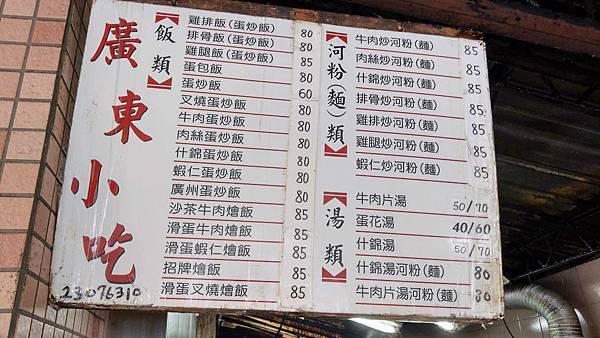 廣東小吃
23076310
飯類
雞排飯(蛋炒飯) 80
排骨飯(蛋炒飯) 80
雞腿飯(蛋炒飯) 80
蛋包飯 80
蛋炒飯 60
叉燒蛋炒飯 80
牛肉蛋炒飯 80
肉絲蛋炒飯 80
什錦蛋炒飯 80
蝦仁蛋炒飯 80
廣州蛋炒飯 80
沙茶牛肉燴飯 85
滑蛋牛肉燴飯 85
滑蛋蝦仁燴飯 85
招牌燴飯 85
滑蛋叉燒燴飯 85
河粉(麵)類
牛肉炒河粉(麵) 85
肉絲炒河粉(麵) 85
什錦炒河粉(麵) 85
排骨炒河粉(麵) 85
雞排炒河粉(麵) 85
雞腿炒河粉(麵) 85
蝦仁炒河粉(麵) 85
湯類
牛肉片湯 50/70
蛋花湯 40/60
什錦湯 50/70
什錦湯河粉(麵) 80
牛肉片湯河粉(麵) 80